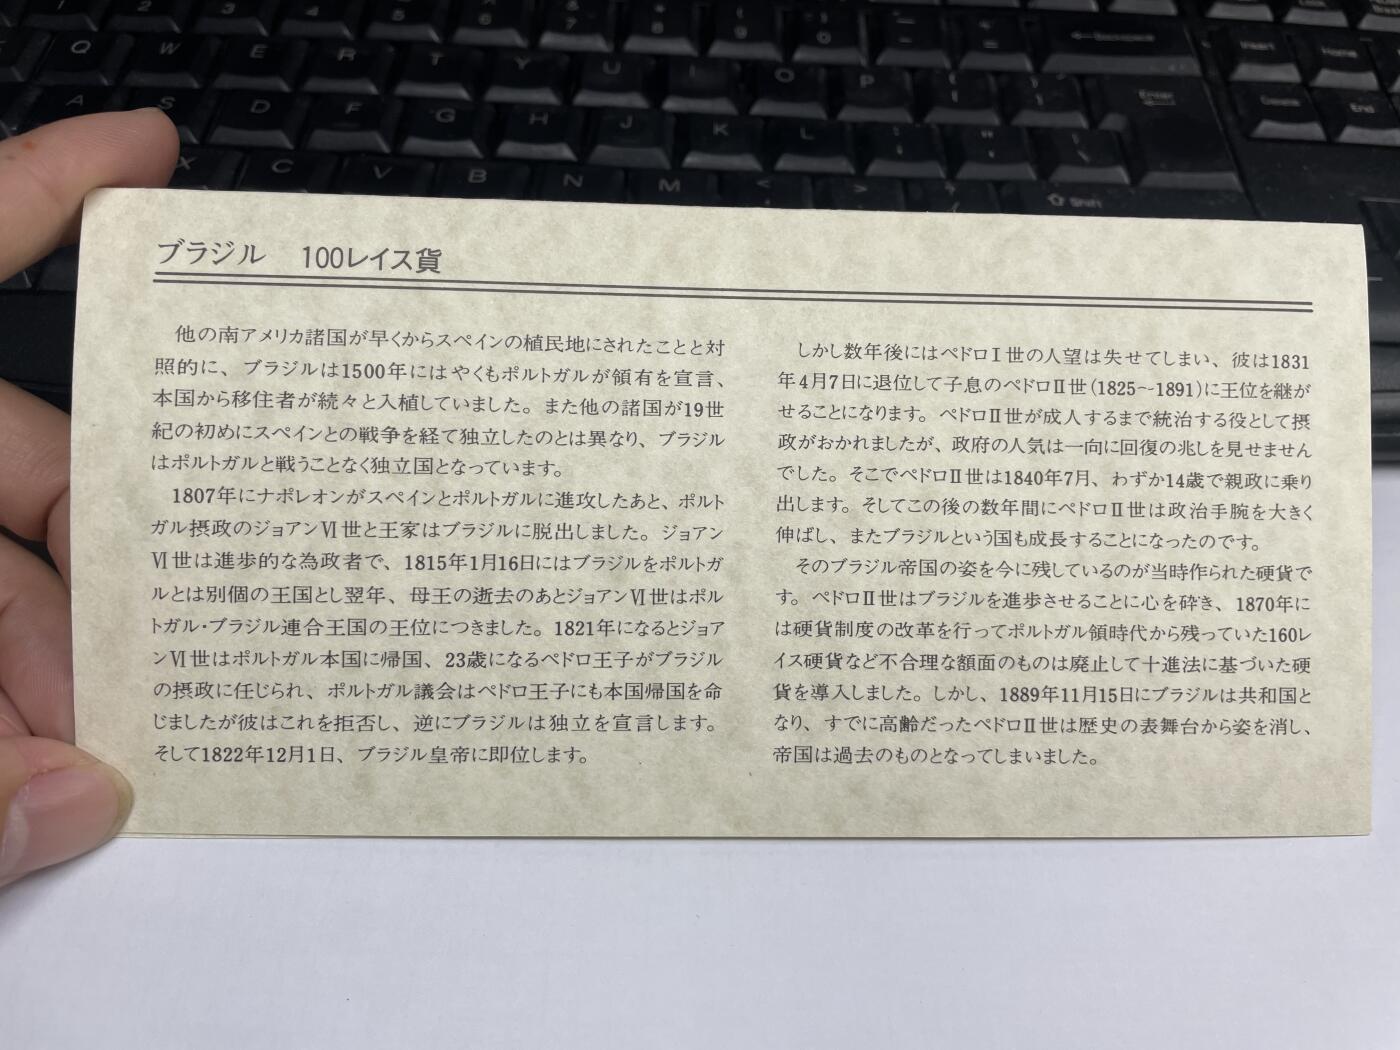 ブラジル　100レイス貨
他の南アメリカ諸国が早くからスペインの植民地にされたことと対
照的に、ブラジルは1500年にはやくもポルトガルが領有を宣言、
本国から移住者が続々と入植していました。また他の諸国が19世
紀の初めにスペインとの戦争を経て独立したのとは異なり、ブラジル
はポルトガルと戦うことなく独立国となっています。
1807年にナポレオンがスペインとポルトガルに進攻したあと、ポルト
ガル摂政のジョアンⅥ世と王家はブラジルに脱出しました。ジョアン
Ⅵ世は進歩的な為政者で、1815年1月16日にはブラジルをポルトガ
ルとは別個の王国とし翌年、母王の逝去のあとジョアンⅥ世はポル
トガル・ブラジル連合王国の王位につきました。1821年になるとジョア
ンⅥ世はポルトガル本国に帰国、23歳になるペドロ王子がブラジル
の摂政に任じられ、ポルトガル議会はペドロ王子にも本国帰国を命
じましたが彼はこれを拒否し、逆にブラジルは独立を宣言します。
そして1822年12月1日、ブラジル皇帝に即位します。
しかし数年後にはペドロⅠ世の人望は失せてしまい、彼は1831
年4月7日に退位して子息のペドロⅡ世(1825〜1891)に王位を継が
せることになります。ペドロⅡ世が成人するまで統治する役として摂
政がおかれましたが、政府の人気は一向に回復の兆しを見せません
でした。そこでペドロⅡ世は1840年7月、わずか14歳で親政に乗り
出します。そしてこの後の数年間にペドロⅡ世は政治手腕を大きく
伸ばし、またブラジルという国も成長することになったのです。
そのブラジル帝国の姿を今に残しているのが当時作られた硬貨で
す。ペドロⅡ世はブラジルを進歩させることに心を砕き、1870年に
は硬貨制度の改革を行ってポルトガル領時代から残っていた160レ
イス硬貨など不合理な額面のものは廃止して十進法に基づいた硬
貨を導入しました。しかし、1889年11月15日にブラジルは共和国と
なり、すでに高齢だったペドロⅡ世は歴史の表舞台から姿を消し、
帝国は過去のものとなってしまいました。